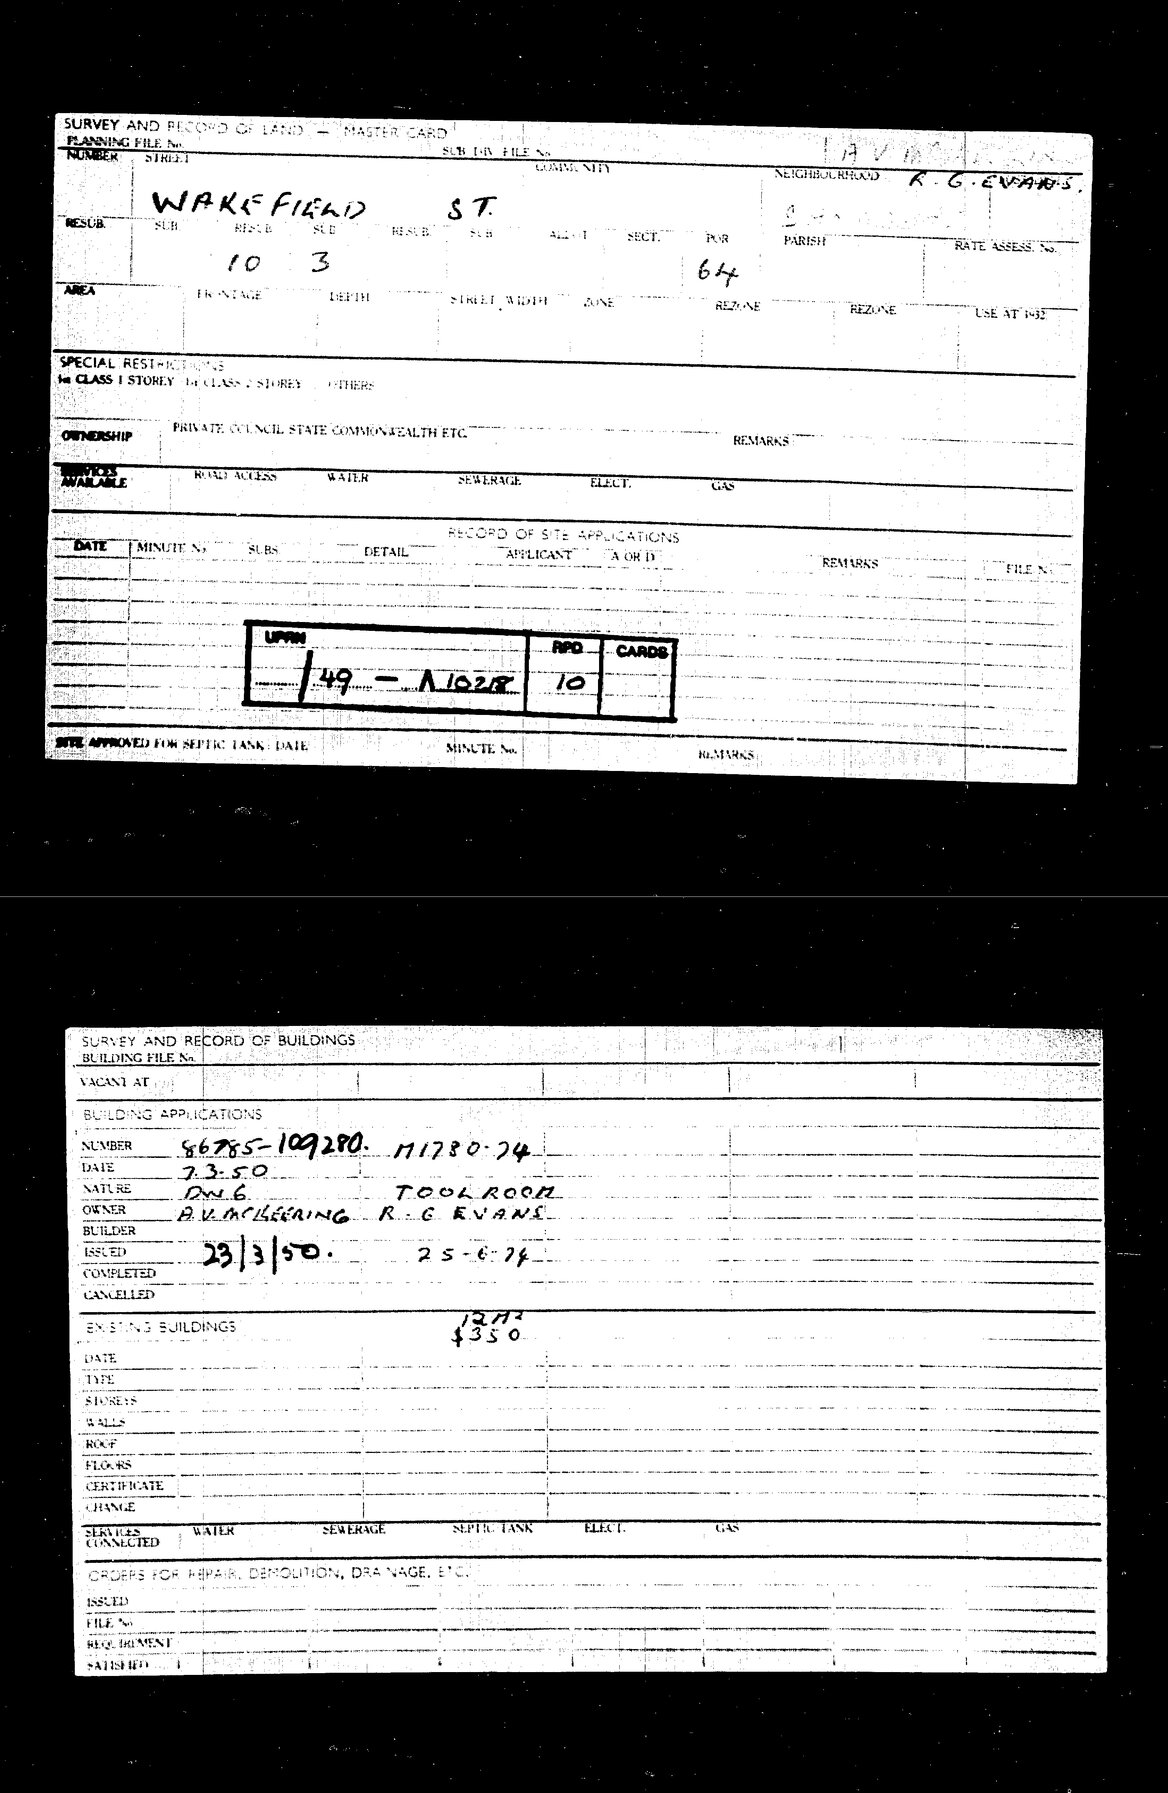 SURVEY AND RECORD OF LAND — MASTER CARD
PLANNING FILE No. SUB-DIV. FILE No. A V
NUMBER STREET COMMUNITY NEIGHBOURHOOD R. G. EVANS.
WAKEFIELD ST.
RESUB. SUB. RESUB. SUB RESUB. SUB ALLOT SECT. POR PARISH RATE ASSESS. No.
10 3 64
AREA FRONTAGE DEPTH STREET WIDTH ZONE REZONE REZONE USE AT 1932
SPECIAL RESTRICTIONS
1st CLASS 1 STOREY 1st CLASS 2 STOREY OTHERS
OWNERSHIP PRIVATE COUNCIL STATE COMMONWEALTH ETC. REMARKS
SERVICES AVAILABLE ROAD ACCESS WATER SEWERAGE ELECT. GAS
RECORD OF SITE APPLICATIONS
DATE MINUTE No. SUBS. DETAIL APPLICANT A OR D REMARKS FILE No.
UPRN RPD CARDS
/ 49 — A10218 10
SITE APPROVED FOR SEPTIC TANK: DATE MINUTE No. REMARKS
SURVEY AND RECORD OF BUILDINGS
BUILDING FILE No.
VACANT AT
BUILDING APPLICATIONS
NUMBER 86785-109280. M1780-74
DATE 7.3.50
NATURE DWG TOOL ROOM
OWNER A.V. MCKEERING R. G EVANS
BUILDER
ISSUED 23/3/50. 25-6-74
COMPLETED
CANCELLED
12M²
EXISTING BUILDINGS $350
DATE
TYPE
STOREYS
WALLS
ROOF
FLOORS
CERTIFICATE
CHANGE
SERVICES CONNECTED WATER SEWERAGE SEPTIC TANK ELECT. GAS
ORDERS FOR REPAIR, DEMOLITION, DRAINAGE, ETC.
ISSUED
FILE No.
REQUIREMENT
SATISFIED